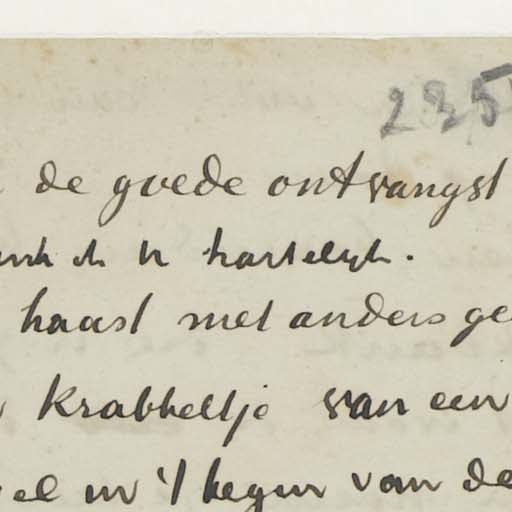 235
de goede ontvangst
ik U hartelijk.
haast met anders ge
krabbeltje van een
el in 't begin van de